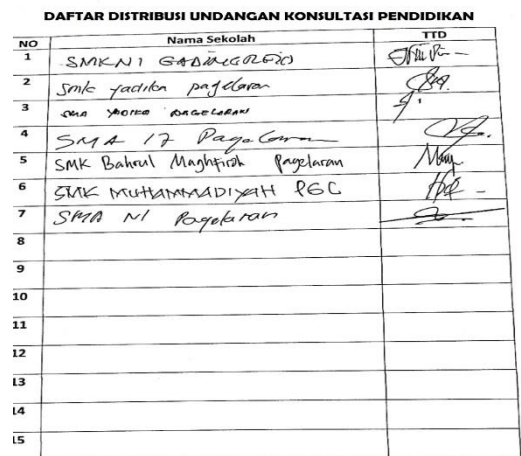 DAFTAR DISTRIBUSI UNDANGAN KONSULTASI PENDIDIKAN
NO Nama Sekolah TTD
1 SMKN 1 GADINGREJO
2 Smk yadika pagelaran
3 SMA YADIKA PAGELARAN
4 SMA 17 Pagelaran
5 SMK Bahrul Maghfiroh Pagelaran
6 SMK MUHAMMADIYAH PGC
7 SMA N1 Pagelaran
8
9
10
11
12
13
14
15